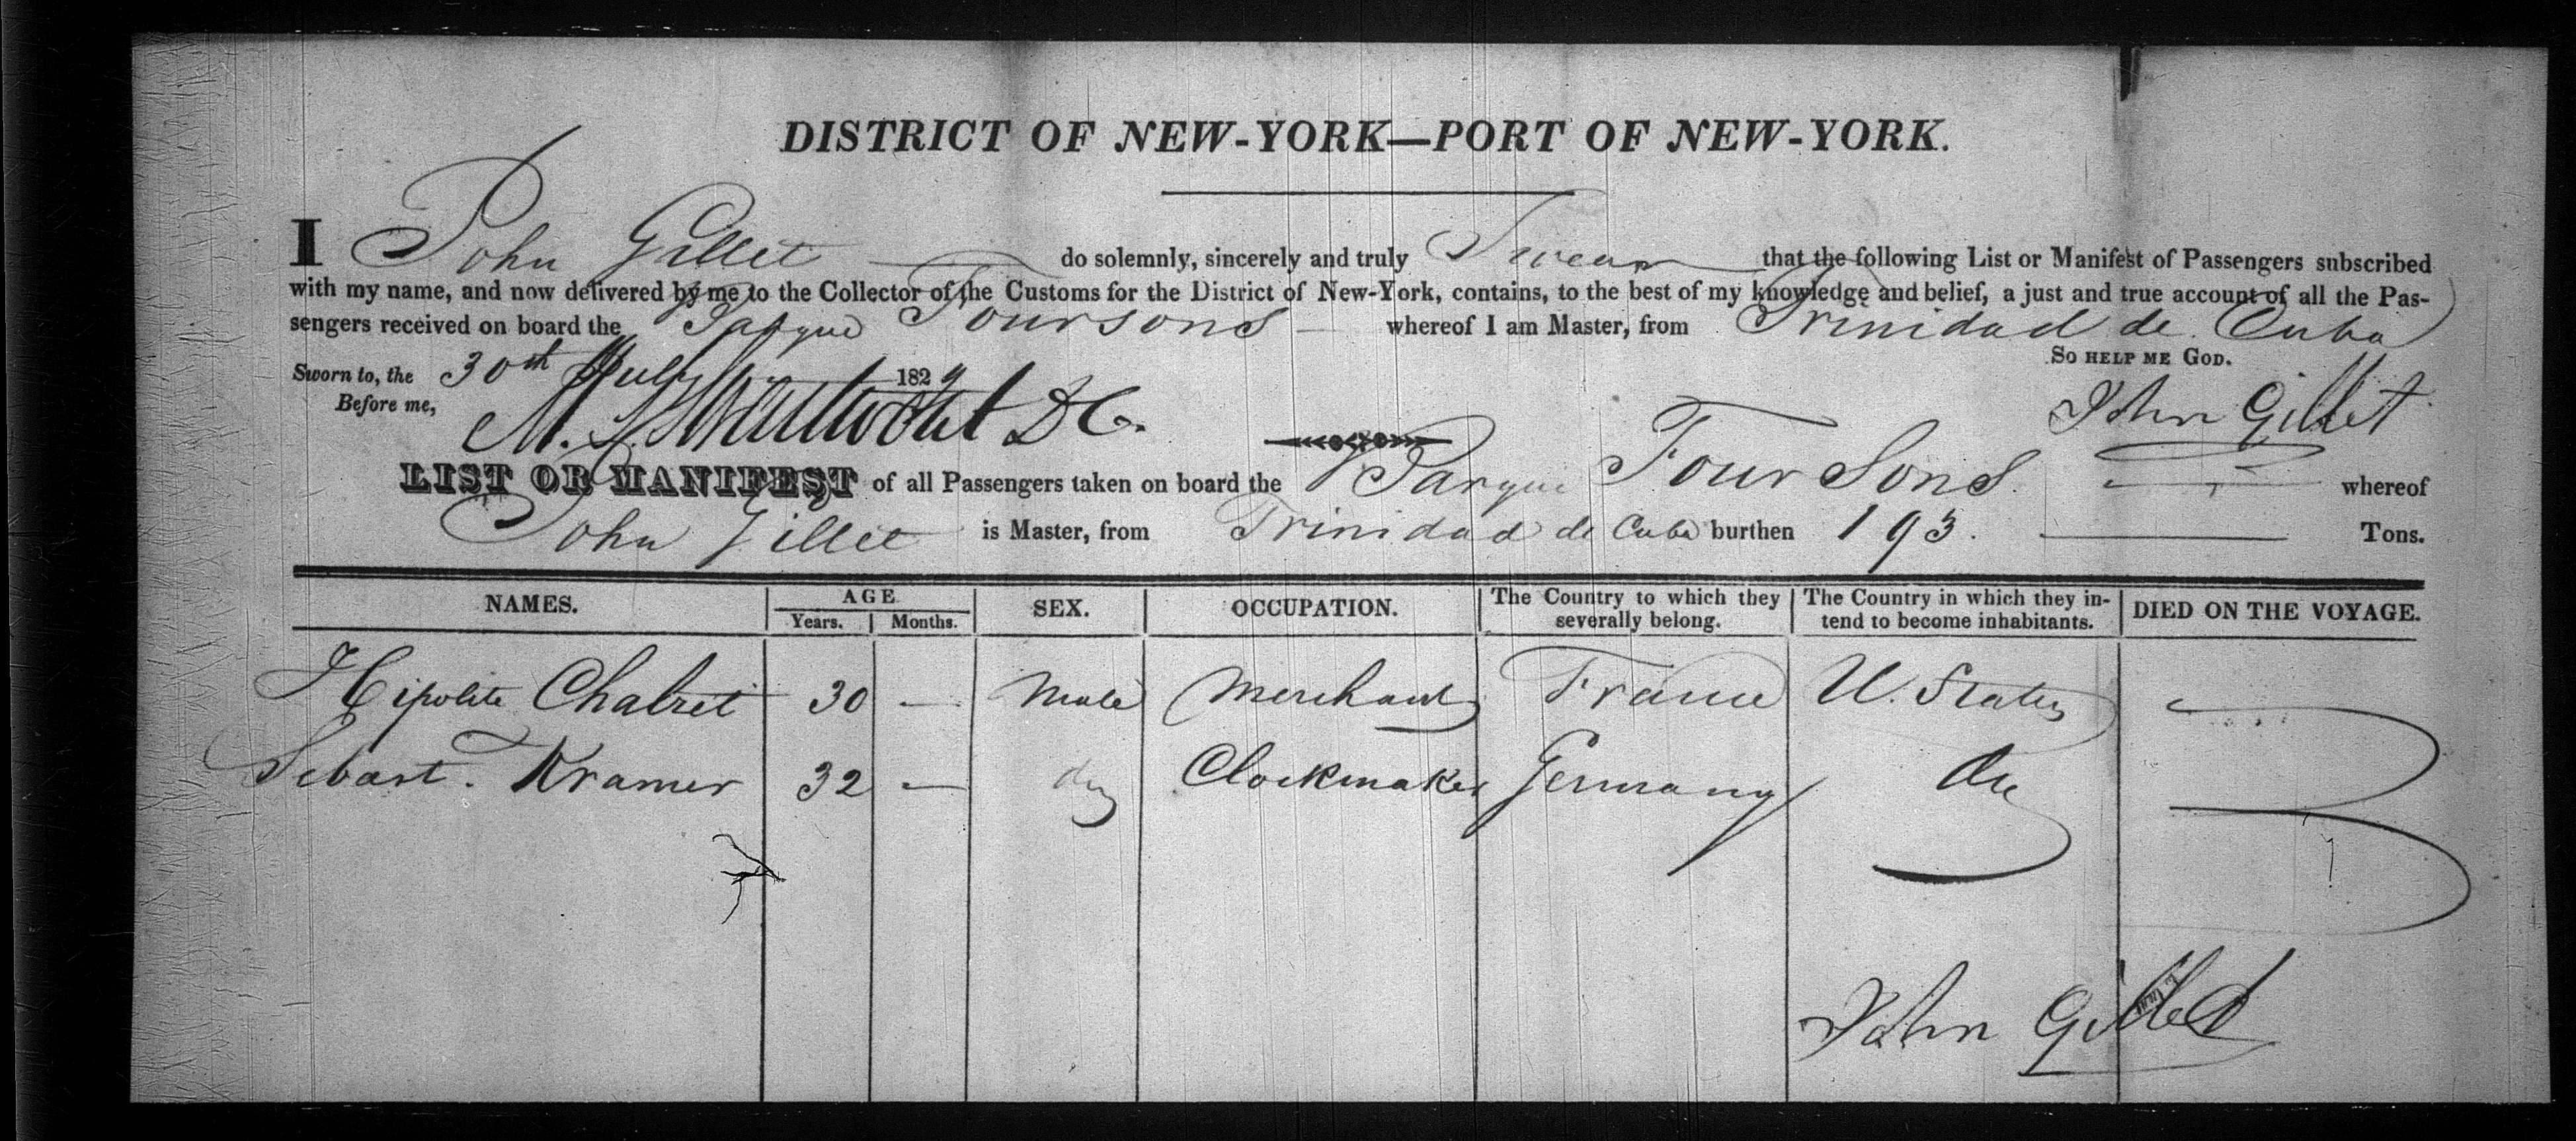 DISTRICT OF NEW-YORK—PORT OF NEW-YORK.
I John Gillet do solemnly, sincerely and truly Swear that the following List or Manifest of Passengers subscribed
with my name, and now delivered by me to the Collector of the Customs for the District of New-York, contains, to the best of my knowledge and belief, a just and true account of all the Pas-
sengers received on board the Foursons whereof I am Master, from Trinidad de Cuba
So help me God.
Sworn to, the 30th July 1829
John Gillet
Before me, M. DC.
LIST OR MANIFEST of all Passengers taken on board the Four Sons whereof
John Gillet is Master, from Trinidad de Cuba burthen 193. Tons.
NAMES. AGE Years. Months. SEX. OCCUPATION. The Country to which they severally belong. The Country in which they in-tend to become inhabitants. DIED ON THE VOYAGE.
Hipolite Chabret 30 — Male Merchant France U. States
Sebast. Kramer 32 — do Clockmaker Germany do
John Gillet